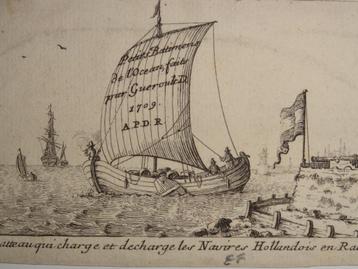 Petits Batimens
de l'Ocean, faits
par Gueroult D.
1709.
A. P. D. R.
atteau qui charge et decharge les Navires Hollandois en Ra